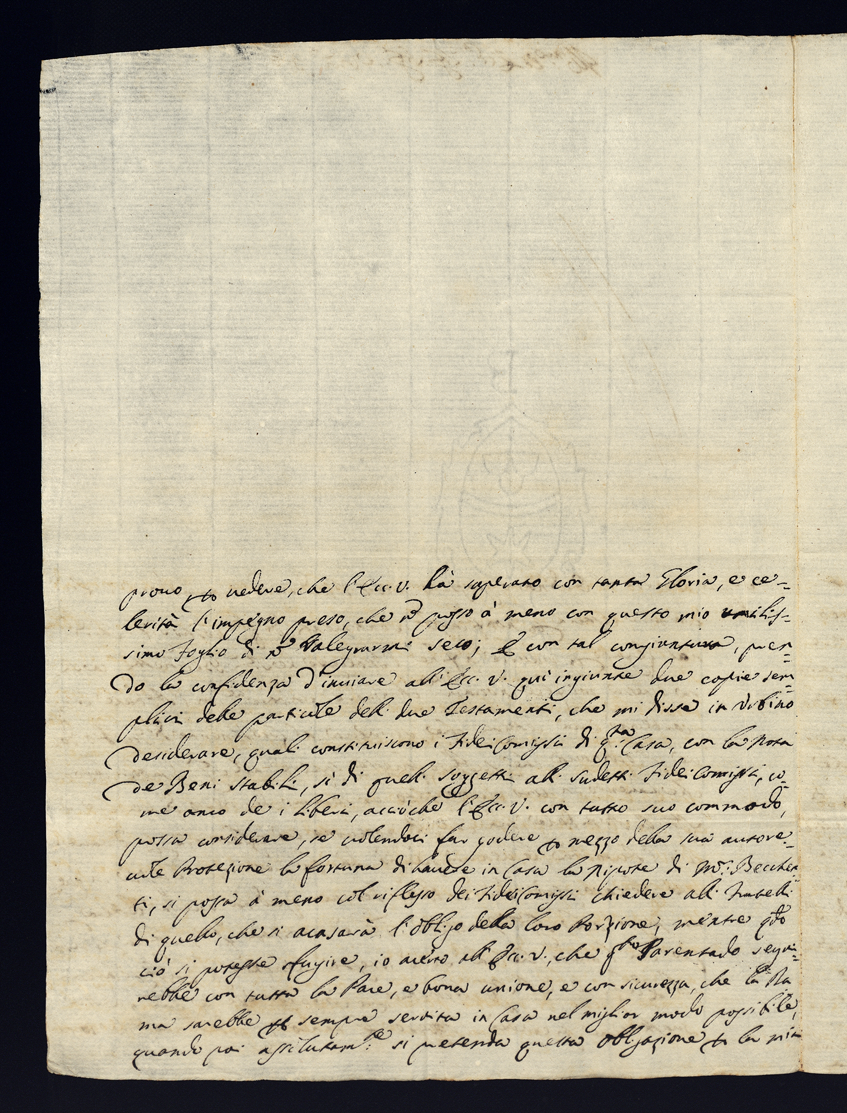 prouo, p uedere, che l'Ecc. V. hà superato con tanta Gloria, e ce-
lerità l'impegno preso, che nõ posso à meno con questo mio umilis-
simo Foglio di nõ ralegrarmi seco; E con tal congiuntura, pren-
do la confidenza d'inuiare all'Ecc. V. qui ingiunte due copie sem-
plici delle particule dell. due Testamenti, che mi disse in Urbino
desiderare, quali constituiscono i Fidei Comissi di q.ta Casa, con la Nota
de Beni stabili, sì di quell. soggetti all. sudetti Fidei Comissi, co-
me anco de i liberi, acciòche l'Ecc. V. con tutto suo commodo,
possa considerare, se uolendoci far godere p mezzo della sua autore-
uole Protezione la fortuna di hauere in Casa la Nipote di M.r Becche
ti, si possa à meno col riflesso dei Fidei Comissi chiedere all. Fratelli
di quello, che si acasarà l'obligo della loro Porzione; mentre q.do
ciò si potesse sfugire, io acerto all'Ecc. V., che q.to Parentado segui-
rebbe con tutta la Pace, e bona unione, e con sicurezza, che la Da
ma sarebbe p sempre seruita in Casa nel miglior modo possibile,
quando poi assolutam.te si pretenda questa obligazione p la mia